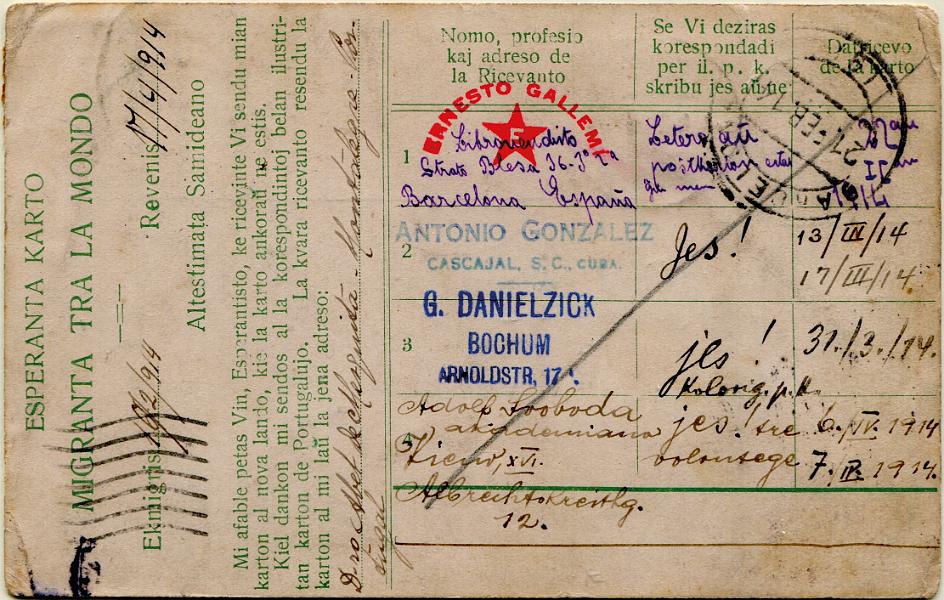 ESPERANTA KARTO
MIGRANTA TRA LA MONDO
Ekmigris 19/2/914
Revenis 17/4/914
Altestimata Samideano
Mi afable petas Vin, Esperantisto, ke ricevinte Vi sendu mian
karton al nova lando, kie la karto ankoraŭ ne estis.
Kiel dankon mi sendos al la korespondintoj belan ilustri-
tan karton de Portugalujo. La kvara ricevanto resendu la
karton al mi laŭ la jena adreso:
Nomo, profesio
kaj adreso de
la Ricevanto
Se Vi deziras
korespondadi
per il. p. k.
skribu jes aŭ ne
Dato ricevo
de la karto
1
ERNESTO GALLEMÍ
Strato Blesa 36-3º
Barcelona España
Letero aŭ
21 FEB. 14
2
ANTONIO GONZALEZ
CASCAJAL, S. C., CUBA.
Jes!
13/III/14
17/III/14.
3
G. DANIELZICK
BOCHUM
ARNOLDSTR, 17
jes!
Kolorig. p.k.
31./3./14.
4
Adolf Svoboda
akademiano
Wien, XVI.
12.
jes! tre
volontege
6./IV. 1914
7. IV. 1914.